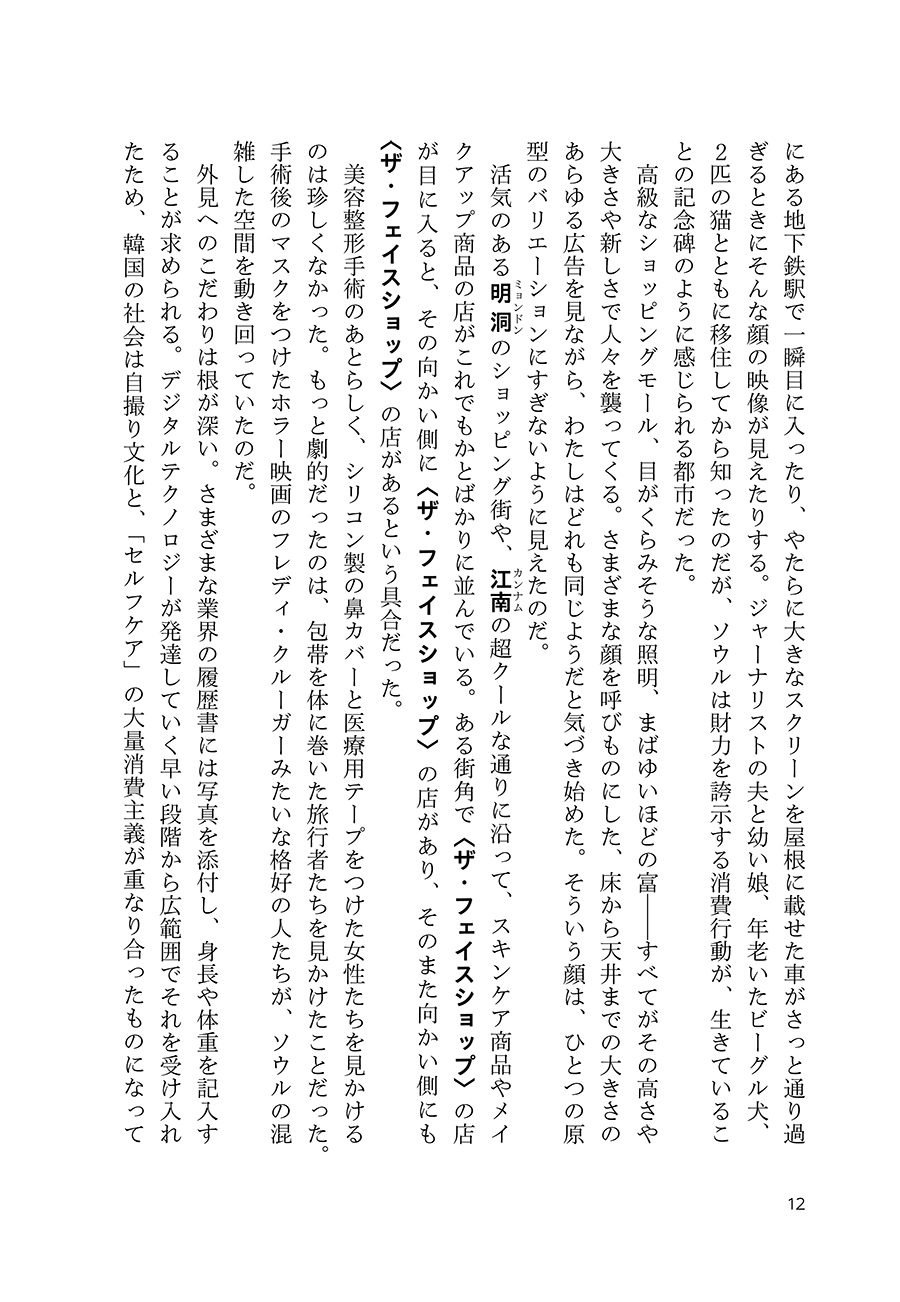 にある地下鉄駅で一瞬目に入ったり、やたらに大きなスクリーンを屋根に載せた車がさっと通り過
ぎるときにそんな顔の映像が見えたりする。ジャーナリストの夫と幼い娘、年老いたビーグル犬、
2匹の猫とともに移住してから知ったのだが、ソウルは財力を誇示する消費行動が、生きているこ
との記念碑のように感じられる都市だった。
高級なショッピングモール、目がくらみそうな照明、まばゆいほどの富――すべてがその高さや
大きさや新しさで人々を襲ってくる。さまざまな顔を呼びものにした、床から天井までの大きさの
あらゆる広告を見ながら、わたしはどれも同じようだと気づき始めた。そういう顔は、ひとつの原
型のバリエーションにすぎないように見えたのだ。
活気のある明洞のショッピング街や、江南の超クールな通りに沿って、スキンケア商品やメイ
ミョンドン
カンナム
クアップ商品の店がこれでもかとばかりに並んでいる。ある街角で〈ザ・フェイスショップ〉の店
が目に入ると、その向かい側に〈ザ・フェイスショップ〉の店があり、そのまた向かい側にも
〈ザ・フェイスショップ〉の店があるという具合だった。
美容整形手術のあとらしく、シリコン製の鼻カバーと医療用テープをつけた女性たちを見かける
のは珍しくなかった。もっと劇的だったのは、包帯を体に巻いた旅行者たちを見かけたことだった。
手術後のマスクをつけたホラー映画のフレディ・クルーガーみたいな格好の人たちが、ソウルの混
雑した空間を動き回っていたのだ。
外見へのこだわりは根が深い。さまざまな業界の履歴書には写真を添付し、身長や体重を記入す
ることが求められる。デジタルテクノロジーが発達していく早い段階から広範囲でそれを受け入れ
たため、韓国の社会は自撮り文化と、「セルフケア」の大量消費主義が重なり合ったものになって
12